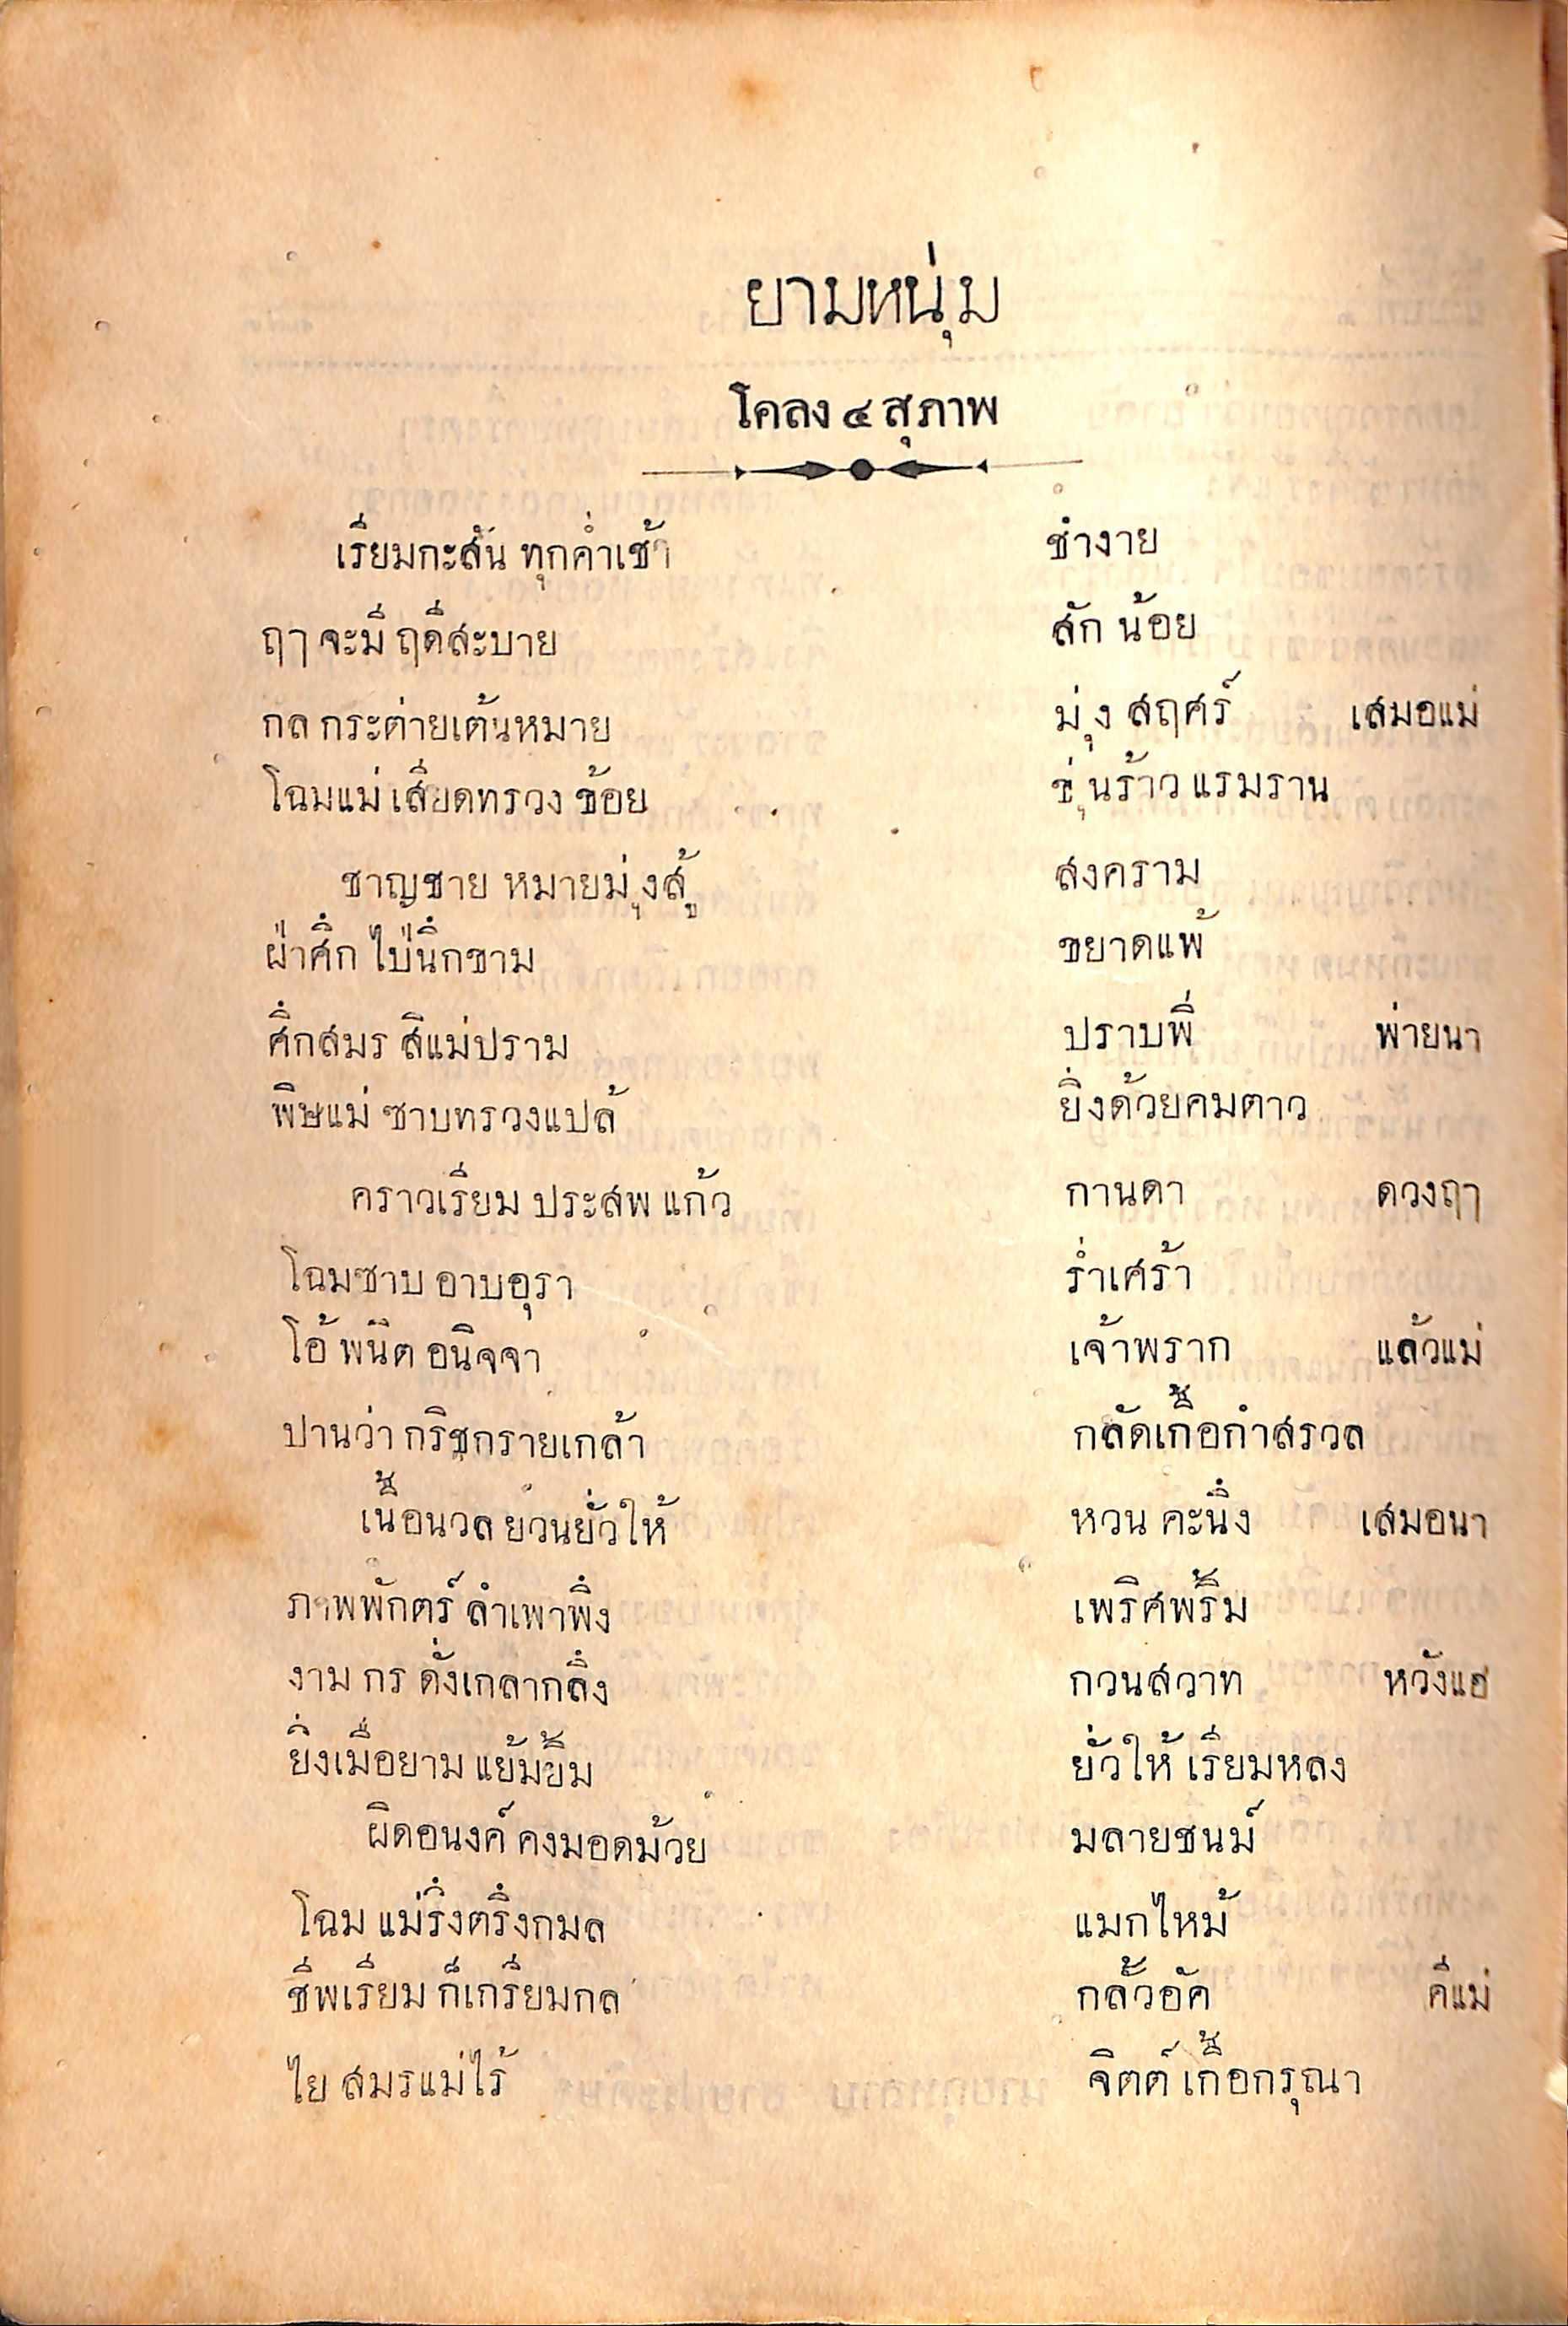 ยามหนุ่ม
โคลง ๔ สุภาพ
เรียมกะสัน ทุกค่ำเช้า ชำงาย
ฤๅ จะมี ฤดีสะบาย สัก น้อย
กล กระต่ายเต้นหมาย มุ่ง สฤศร์ เสมอแม่
โฉมแม่ เสียดทรวง ช้อย ขุ่นร้าว แรมราน
ชาญชาย หมายมุ่งสู้ สงคราม
ฝ่าศึก ไป่นึกขาม ขยาดแพ้
ศึกสมร สิแม่ปราม ปราบพี่ พ่ายนา
พิษแม่ ซาบทรวงแปล้ ยิ่งด้วยคมดาว
คราวเรียม ประสพ แก้ว กานดา ดวงฤๅ
โฉมซาบ อาบอุรา ร่ำเศร้า
โอ้ พนิต อนิจจา เจ้าพราก แล้วแม่
ปานว่า กริชกรายเกล้า กลัดเกื้อกำสรวล
เนื้อนวล ย่วนยั่วให้ หวน คะนึง เสมอนา
ภาพพักตร์ ลำเพาพึง เพริศพริ้ม
งาม กร ดั่งเกลากลึง กวนสวาท หวังแฮ
ยิ่งเมื่อยาม แย้มยิ้ม ยั่วให้ เรียมหลง
ผิดอนงค์ คงมอดม้วย มลายชนม์
โฉม แม่รึงตรึงกมล แมกไหม้
ชีพเรียม ก็เกรียมกล กลั้วอัค คีแม่
ไย สมรแม่ไร้ จิตต์ เกื้อกรุณา